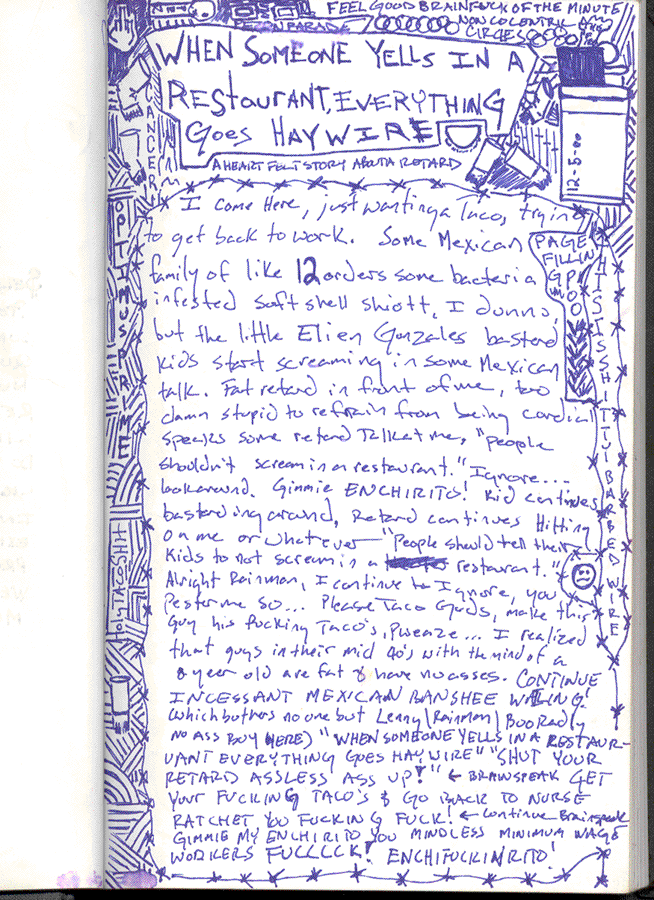 FEEL GOOD BRAINFUCK OF THE MINUTE
NONCOCENTRIC
CIRCLES
PARADE
WHEN SOMEONE YELLS IN A
RESTAURANT, EVERYTHING
GOES HAYWIRE
A HEART FELT STORY ABOUT A RETARD
CANCER
12-5-00
OPTIMUS PRIME
Holy TACO SHIT
PAGE
FILLIN
THIS IS SHITTY BARBED WIRE
I come Here, just wanting a Taco, trying
to get back to work. Some Mexican
family of like 12 orders some bacteria
infested soft shell shiott, I dunno,
but the little Elien Gonzales basterd
kids start screaming in some Mexican
talk. Fat retard in front of me, too
damn stupid to refrain from being cordial
speaks some retard Talk at me, "people
shouldn't scream in a restaurant." Ignore...
look around. Gimmie ENCHIRITO! Kid continues
basterding around, Retard continues Hitting
on me or whatever - "People should tell their
Kids to not scream in a restaurant."
Alright Rainman, I continue to Ignore, you
Pester me so... Please Taco Gods, make this
guy his fucking Taco's, Pweaze... I realized
that guys in their mid 40's with the mind of a
8 year old are fat & have no asses. CONTINUE
INCESSANT MEXICAN BANSHEE WAILING!
(which bothers no one but Lenny\Rainman\Boo Radly
NO ASS BOY HERE) "WHEN SOMEONE YELLS IN A RESTAUR-
UANT EVERYTHING GOES HAYWIRE" "SHUT YOUR
RETARD ASSLESS ASS UP!" ← BRAINSPEAK GET
YOUR FUCKING TACO'S & GO BACK TO NURSE
RATCHET YOU FUCKING FUCK! ← Continue Brainspeak
GIMMIE MY ENCHIRITO YOU MINDLESS MINIMUM WAGE
WORKERS FUCLLCK! ENCHIFUCKINRITO!